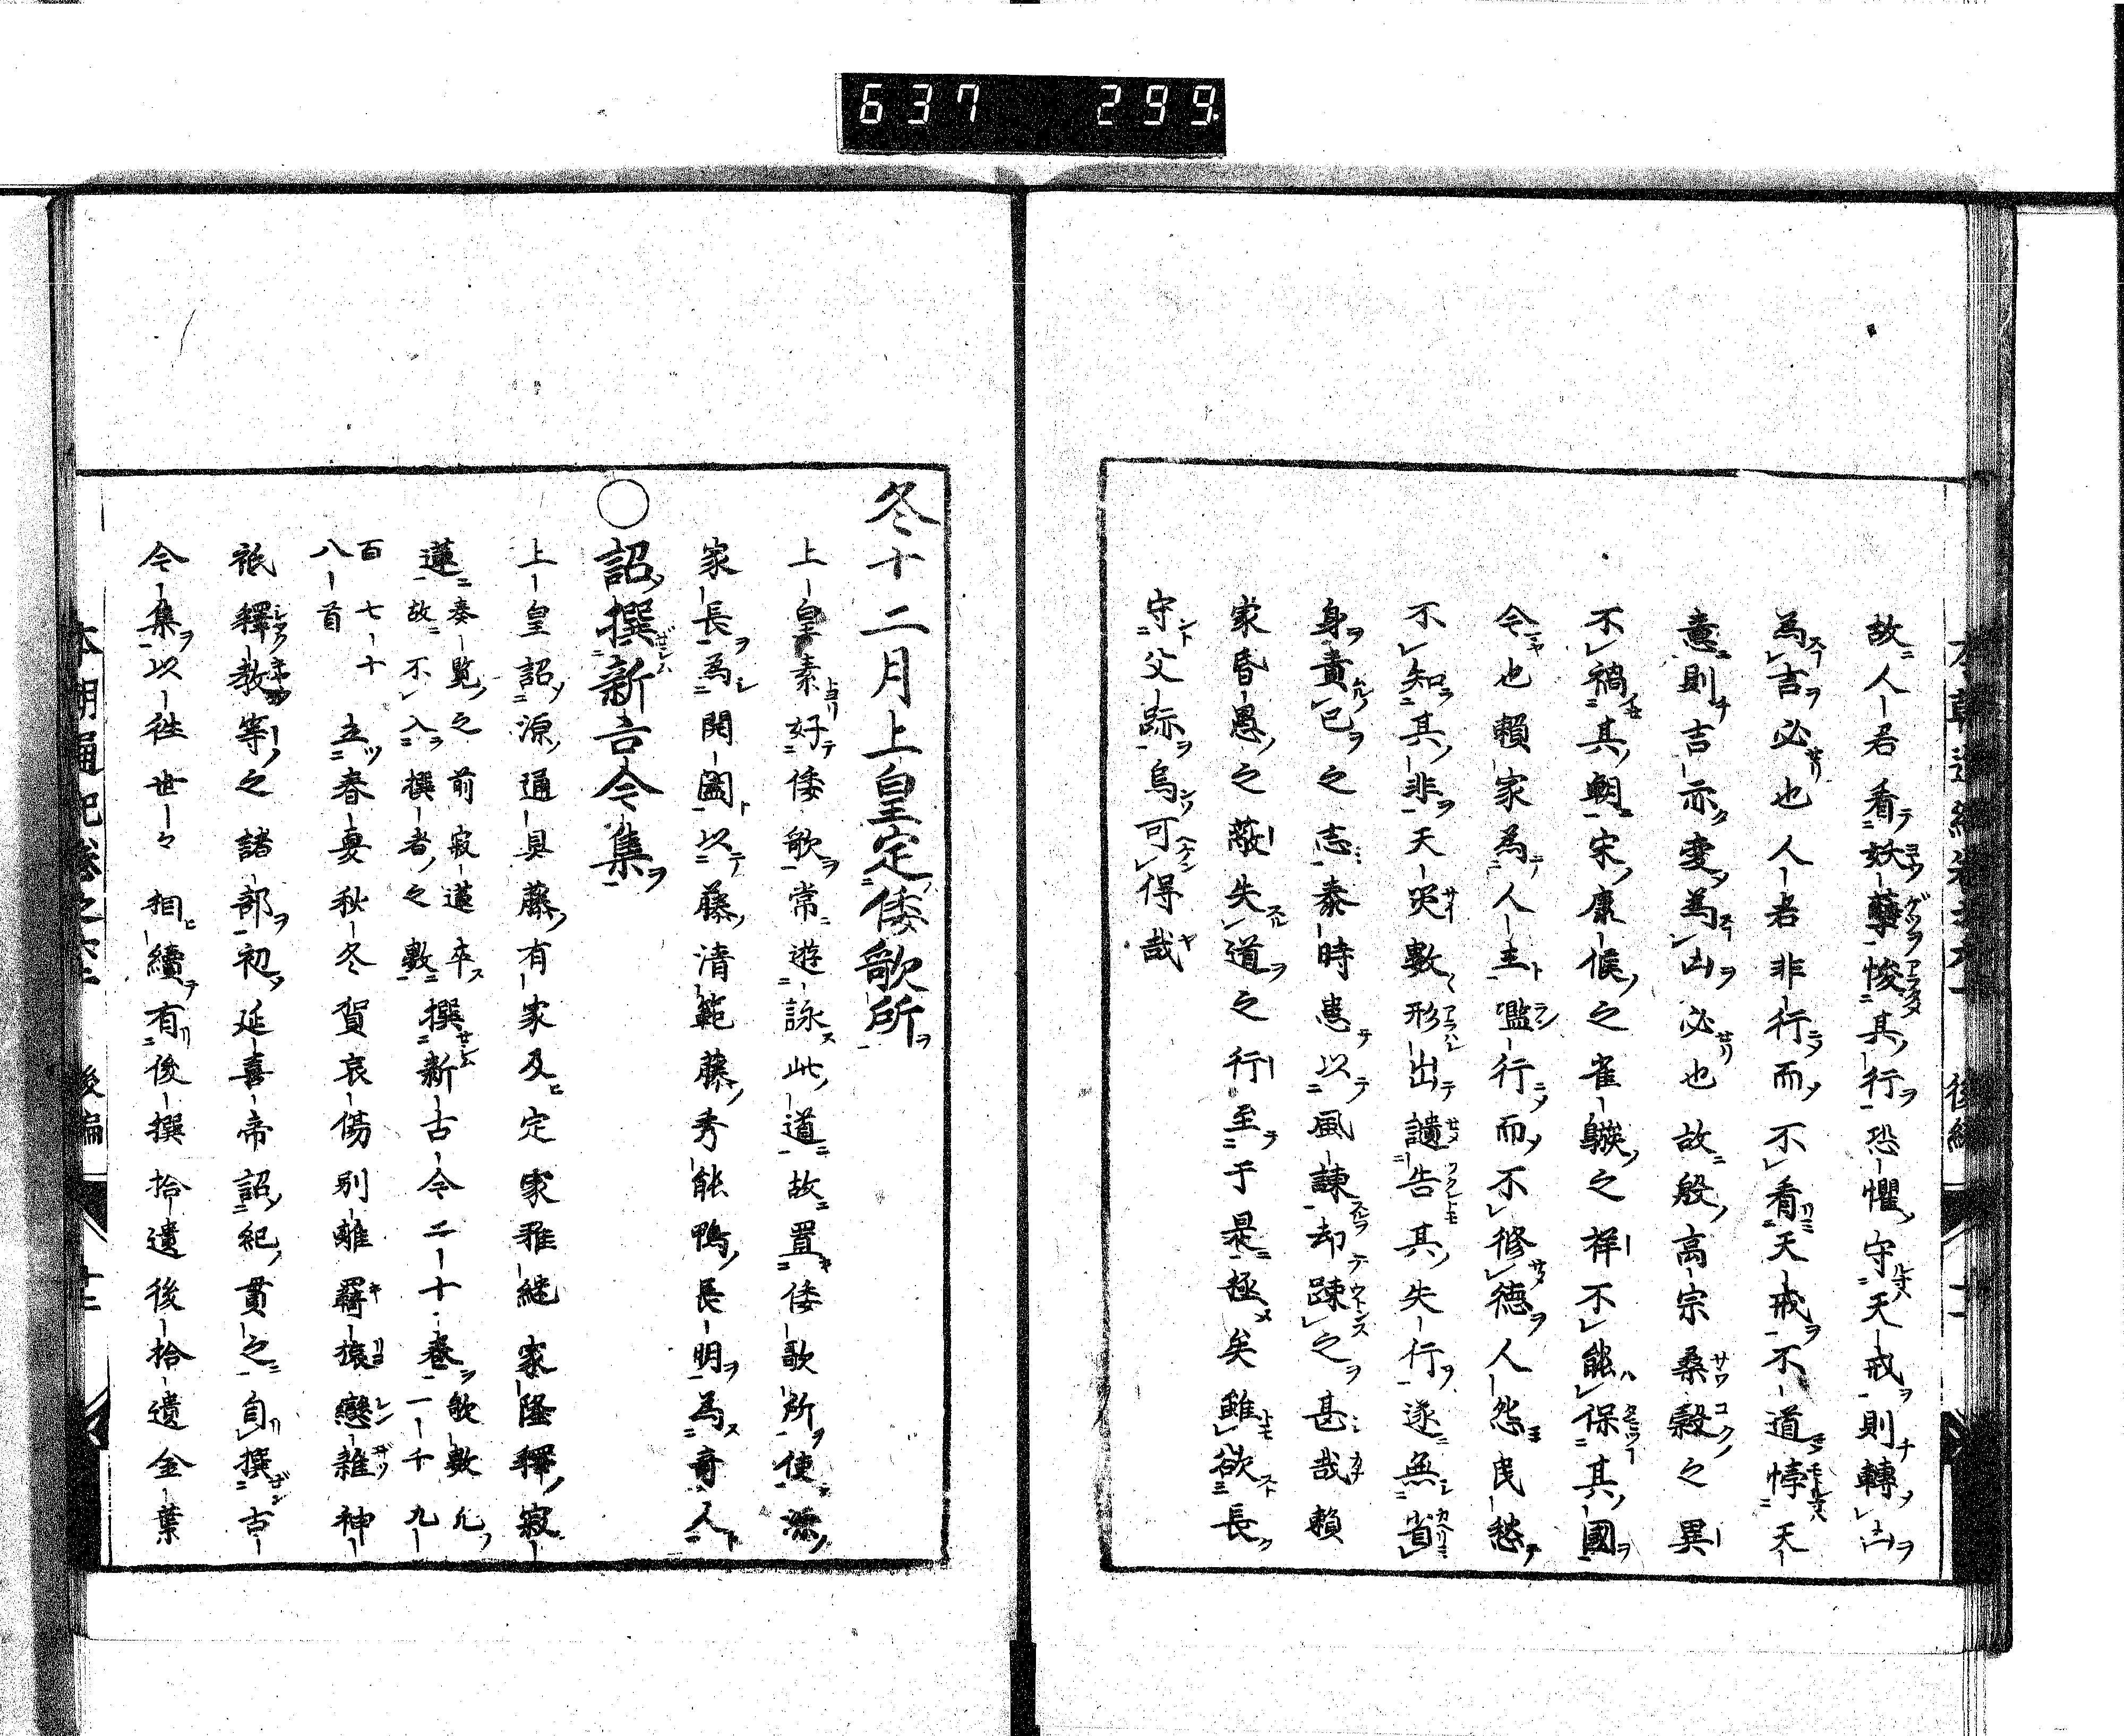 637 299
故人君看妖孽悛其行恐懼守天戒則轉凶
為吉必也人君非行而不看天戒不道悖天
意則吉亦變為凶必也故殷高宗桑穀之異
不禍其朝宋康侯之雀鷇之祥不能保其國
今也賴家為人主濫行而不修德人怨民愁
不知其非天災數形出譴告其失行遂無省
身責已之志泰時患以風諫却踈之甚哉賴
家昏愚之蔽失道之行至于是極矣雖欲長
守父跡烏可得哉
冬十二月上皇定倭歌所
上皇素好倭歌常遊詠此道故置倭歌所使源
家長為開闔以藤清範藤秀能鴨長明為寄人
○詔撰新古今集
上皇詔源通具藤有家及定家雅経家隆釋寂
蓮奏覧之前寂蓮卒故不入撰者之數撰新古今二十巻歌數凡一千九
百七十八首立春夏秋冬賀哀傷別離羇旅戀雜神
祇釋教等之諸部初延喜帝詔紀貫之自撰古
今集以往世々相續有後撰拾遺後拾遺金葉
本朝通紀巻之六 後編 十二